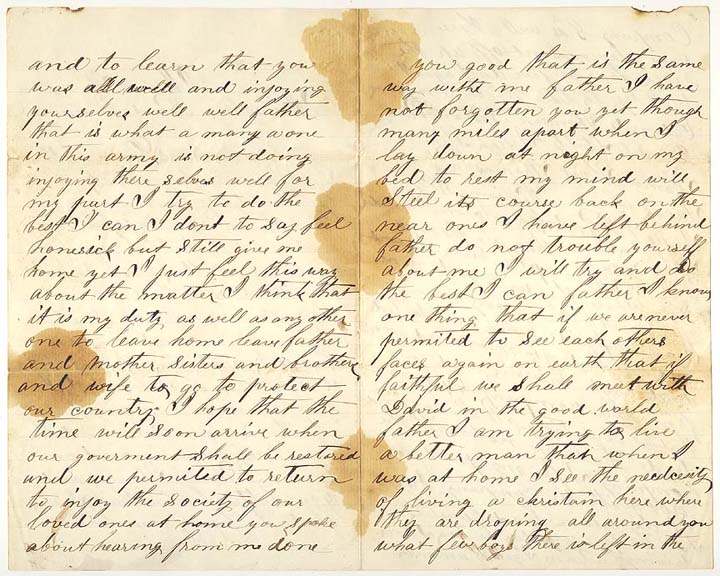 and to learn that you
was all well and injoying
yourselves well well father
that is what a many a one
in this army is not doing
injoying there selves well for
my part I try to do the
best I can I dont to say feel
homesick but still give me
home yet I just feel this way
about the matter I think that
it is my duty as well as any other
one to leave home leave father
and mother sisters and brothers
and wife to go to protect
our country I hope that the
time will soon arrive when
our goverment shall be restored
and we permited to return
to injoy the society of our
loved ones at home you spoke
about hearing from me done
you good that is the same
way withe me father I have
not forgotten you yet though
many miles apart when I
lay down at night on my
bed to rest my mind will
steel its course back on the
near ones I have left behind
father do not trouble yourself
about me I will try and do
the best I can father I know
one thing that if we are never
permited to see each others
faces again on earth that if
faithful we shall meet with
David in the good world
father I am trying to live
a better man that when I
was at home I see the nedcesity
of living a christain here where
they are droping all around you
what few boys there is left in the